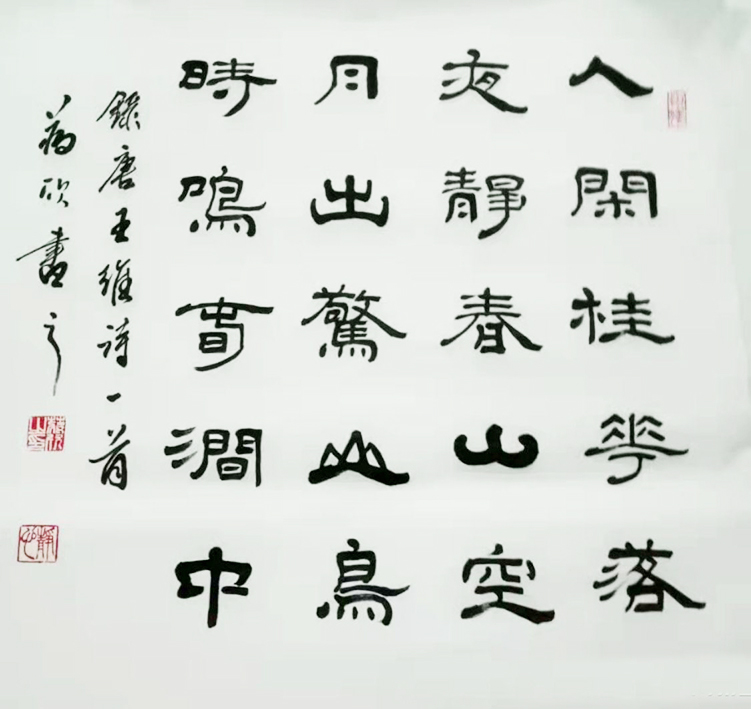 人閑桂華落
夜靜春山空
月出驚山鳥
時鳴旾澗中
錄唐王維詩一首
欣書之